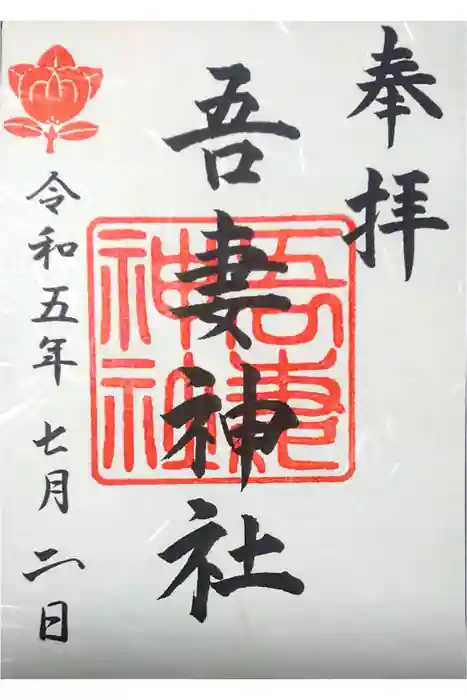 奉拝
吾妻神社
吾妻
神社
令和五年 七月 二日